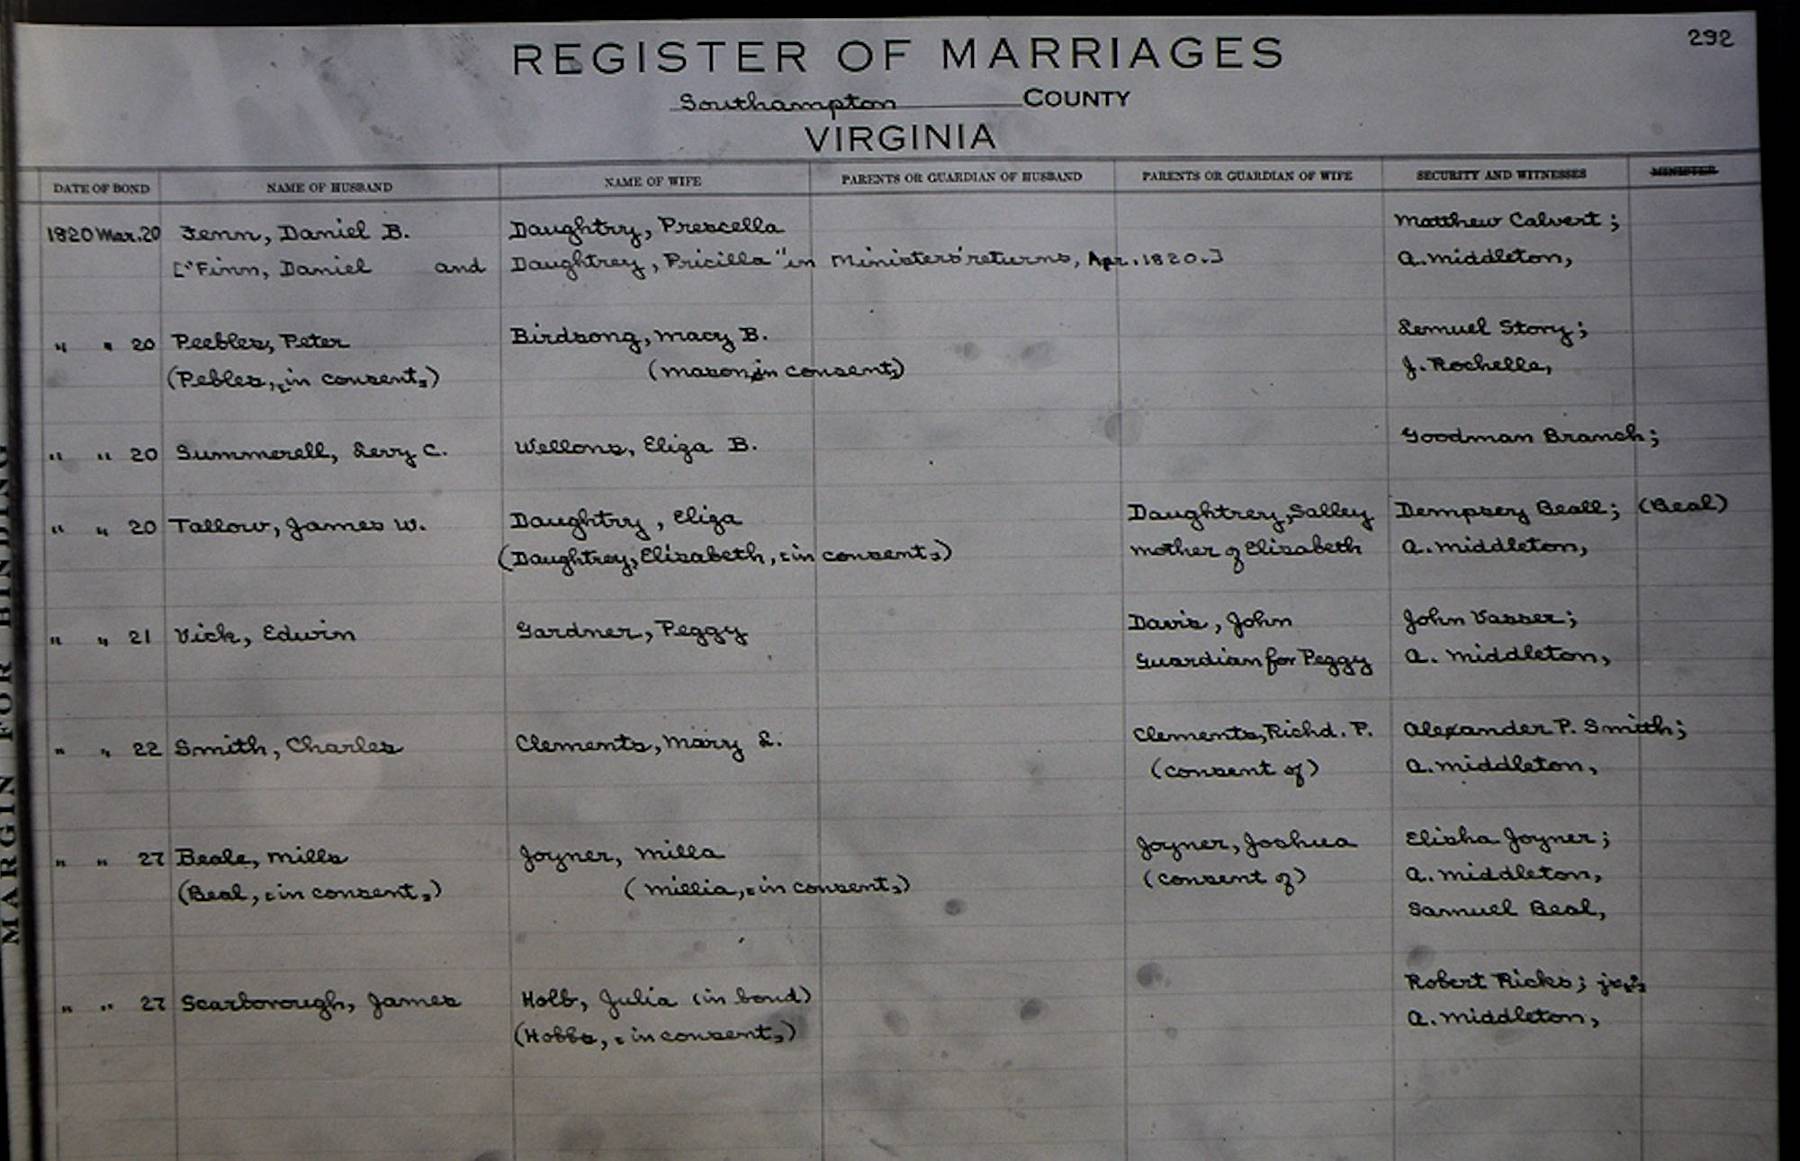 292
REGISTER OF MARRIAGES
Southampton COUNTY
VIRGINIA
DATE OF BOND NAME OF HUSBAND NAME OF WIFE PARENTS OR GUARDIAN OF HUSBAND PARENTS OR GUARDIAN OF WIFE SECURITY AND WITNESSES MINISTER
1820 Mar. 20 Fenn, Daniel B. Daughtry, Prescella Matthew Calvert;
["Finn, Daniel and Daughtrey, Pricilla" in Ministers' returns, Apr. 1820.] A. Middleton,
" " 20 Peebles, Peter Birdsong, Macy B. Lemuel Story;
(Pebles, in consent,) (Mason, in consent,) J. Rochelle,
" " 20 Summerell, Levy C. Wellons, Eliza B. Goodman Branch;
" " 20 Tallow, James W. Daughtry, Eliza Daughtrey, Salley Dempsey Beall; (Beal)
(Daughtrey, Elisabeth, in consent,) mother of Elisabeth A. Middleton,
" " 21 Vick, Edwin Gardner, Peggy Davis, John John Vasser;
Guardian for Peggy A. Middleton,
" " 22 Smith, Charles Clements, Mary L. Clements, Richd. P. Alexander P. Smith;
(consent of) A. Middleton,
" " 27 Beale, Mills Joyner, Milla Joyner, Joshua Elisha Joyner;
(Beal, in consent,) (Millia, in consent,) (consent of) A. Middleton,
Samuel Beal,
" " 27 Scarborough, James Holb, Julia (in bond) Robert Ricks; jr.
(Hobbs, in consent,) A. Middleton,
MARGIN FOR BINDING